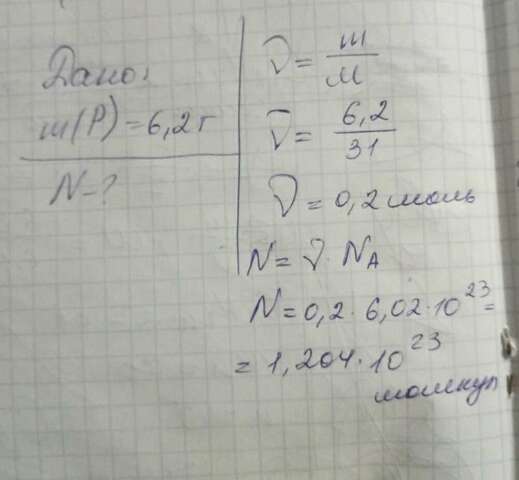 Дано:
m(P)=6,2 г
N-?
ν = m/M
ν = 6,2/31
ν = 0,2 моль
N = ν · NA
N = 0,2 · 6,02 · 10^23 =
= 1,204 · 10^23
молекул